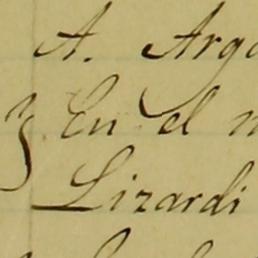 A. Arga
En el m
Lizardi